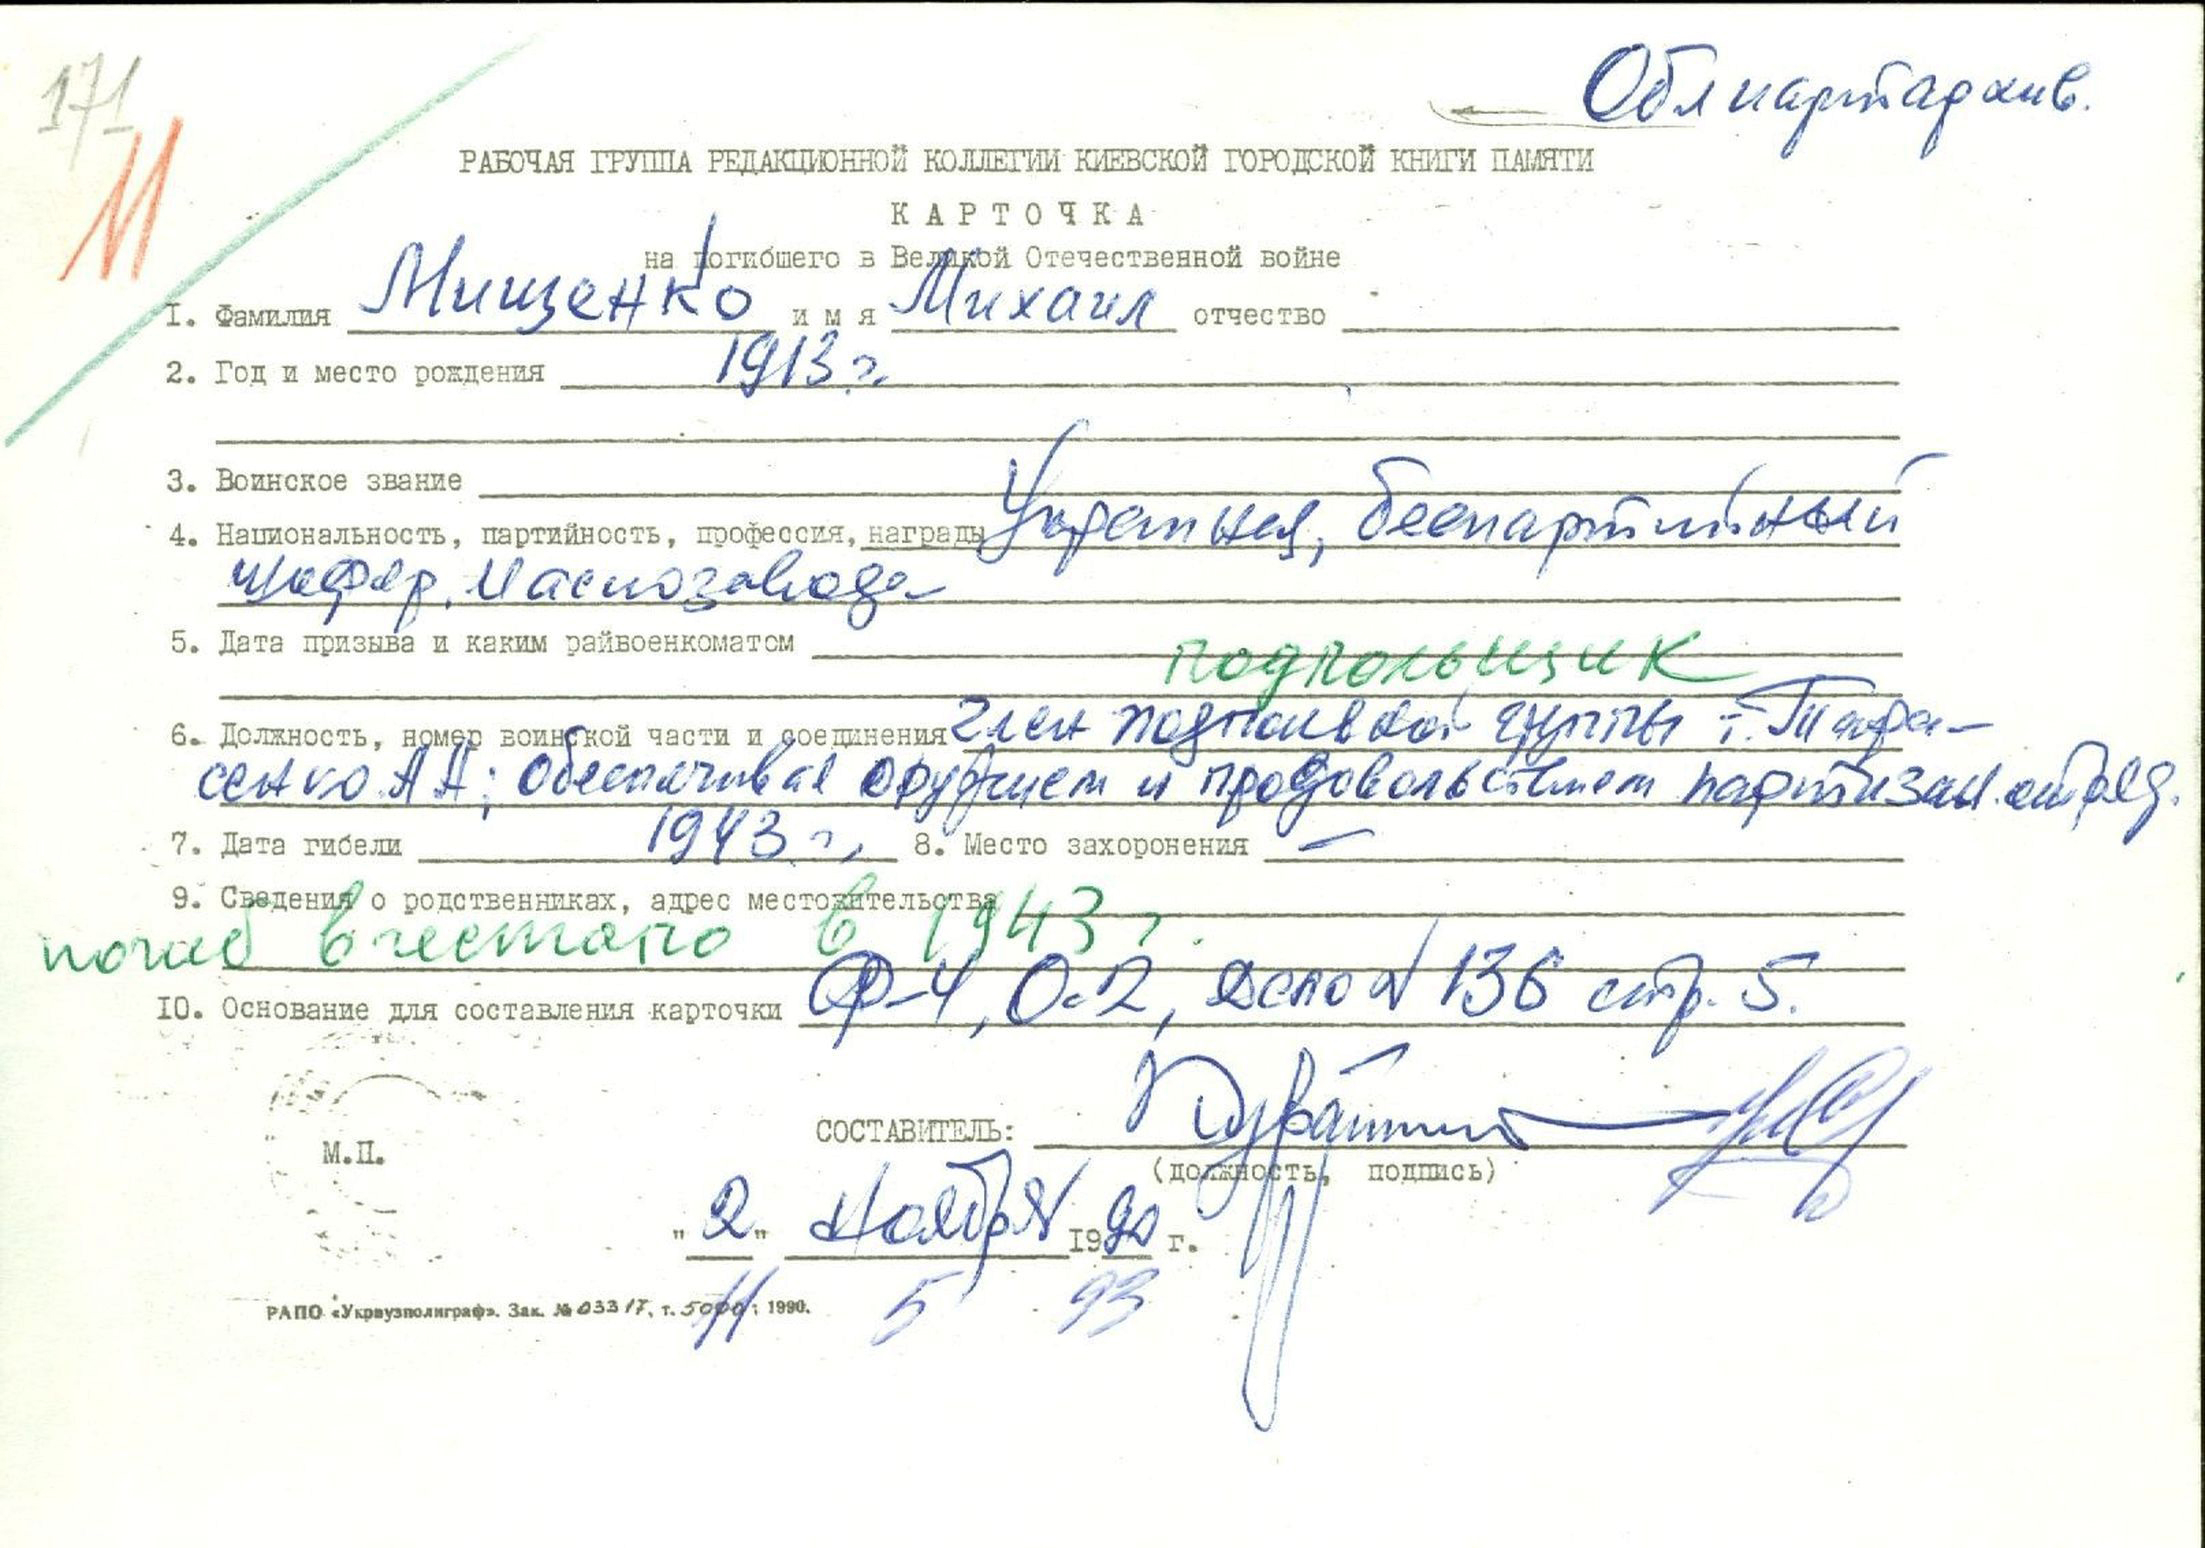 171
М
Облпартархив.
РАБОЧАЯ ГРУППА РЕДАКЦИОННОЙ КОЛЛЕГИИ КИЕВСКОЙ ГОРОДСКОЙ КНИГИ ПАМЯТИ
КАРТОЧКА
на погибшего в Великой Отечественной войне
1. Фамилия Мищенко имя Михаил отчество
2. Год и место рождения 1913 г.
3. Воинское звание
4. Национальность, партийность, профессия, награды беспартийный
шофер. Маслозавода
5. Дата призыва и каким райвоенкоматом
подпольщик
6. Должность, номер воинской части и соединения член подпольной группы т. Тара-
сенко А А; обеспечивал оружием и продовольствием партизан. отряд.
7. Дата гибели 1943 г. 8. Место захоронения —
9. Сведения о родственниках, адрес местожительства
погиб в гестапо в 1943 г.
10. Основание для составления карточки Ф-4, О-2, Дело N 136 стр. 5.
СОСТАВИТЕЛЬ:
М.П.
(должность, подпись)
"2" Ноября 1990 г.
11 5 93
РАПО «Укрвузполиграф». Зак. № 03317, т. 5000; 1990.